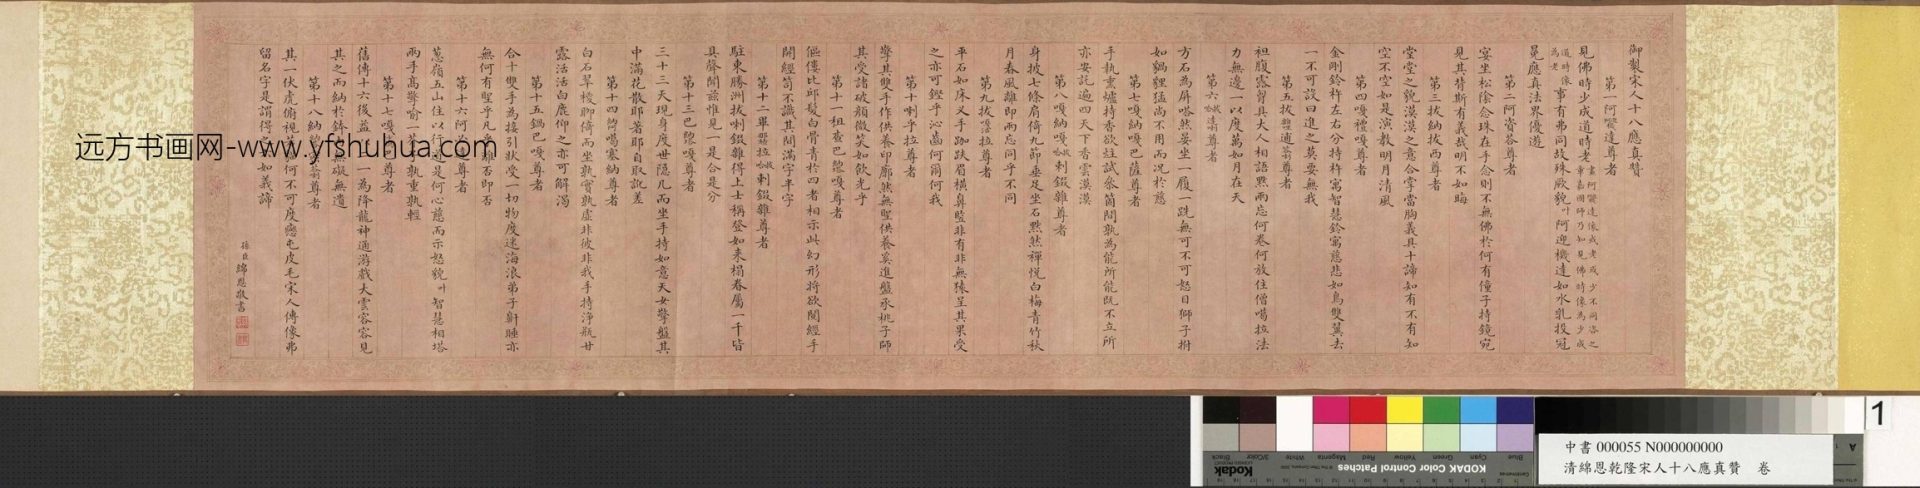 御製宋人十八應真贊
第一阿㘕達尊者
見佛時少成道時老
道時像
為老
事有弗同故殊厥貌阿迎機達如水乳投冠
冕應真法界優遊
第二阿資答尊者
宴坐松陰念珠在手念則不無佛於何有僮子持鏡宛
見其替斯有義哉明不如晦
第三拔納拔西尊者
堂堂之貌漠漠之意合掌當胸義具十諦知有不有知
空不空如是演教明月清風
第四嘎禮嘎尊者
金剛鈴杵左右分持杵寓智慧鈴寓慈悲如鳥雙翼去
一不可設曰進之莫要無我
第五拔雜哩逋答喇尊者
袒腹露胷具大人相語默兩忘何卷何放住僧噶拉法
力無邊一以度萬如月在天
第六
尊者
方石為屏嗒然晏坐一履一跣無可不可怒目獅子拊
如貓貍猛尚不用而況於慈
第七嘎納嘎巴薩尊者
手執熏爐持香欲炷試參箇閒孰為能所能既不立所
亦安託遍四天下香雲漠漠
第八嘎納嘎哈剌錣雜尊者
身披七條肩倚九節垂足坐石默然禪悅白梅青竹秋
月春風離即兩忘同乎不同
第九拔嘎沽拉尊者
平石如床叉手跏趺眉橫鼻豎非有非無猿呈其果受
之亦可鏗乎沁齒何爾何我
第十喇乎拉尊者
擎其雙手作供養印廓然無聖供養奚進盤承桃子師
其受諸破顏微笑如飲光乎
第十一租查巴嘎尊者
傴僂比邱髮白骨青於四者相示此幻形將欲閱經手
開經笥不識其間滿字半字
第十二畢那楂拉哈剌錣雜尊者
駐東勝洲拔喇錣雜得上士稱登如来榻眷屬一千皆
具聲聞茲惟見一是合是分
第十三巴嘎尊者
三十三天現身度世隱几而坐手持如意天女擎盤其
中滿花散耶著耶自取訛差
第十四噶塞納尊者
白石翠稜聊倚而坐孰實孰虛非彼非我手持淨瓶甘
露活活白鹿仰之亦可解渴
第十五鍋巴嘎尊者
合十雙手為接引狀受一切物度迷海浪弟子鼾睡亦
無何有聖乎凡離否即否
第十六阿尊者
蔥嶺五山住以行道是何心慈而示怒貌智慧相塔
兩手高擎喻一孰重孰輕
第十七嘎尊者
舊傳十六後益一為降龍神通游戲大雲容容見
其之而納於鉢無礙無遺
第十八納尊者
其一伏虎俯視何不可度戀屯皮毛宋人傳像弗
留名字是謂得如義諦
孫臣綿恩敬書
远方书画网-www.yfshuhua.com
KODAK Color Control Patches
Blue
Cyan
Green
Yellow
Red
Magenta
White
3/Color
Black
Kodak
A
1
中書 000055 N000000000
清綿恩乾隆宋人十八應真贊　卷